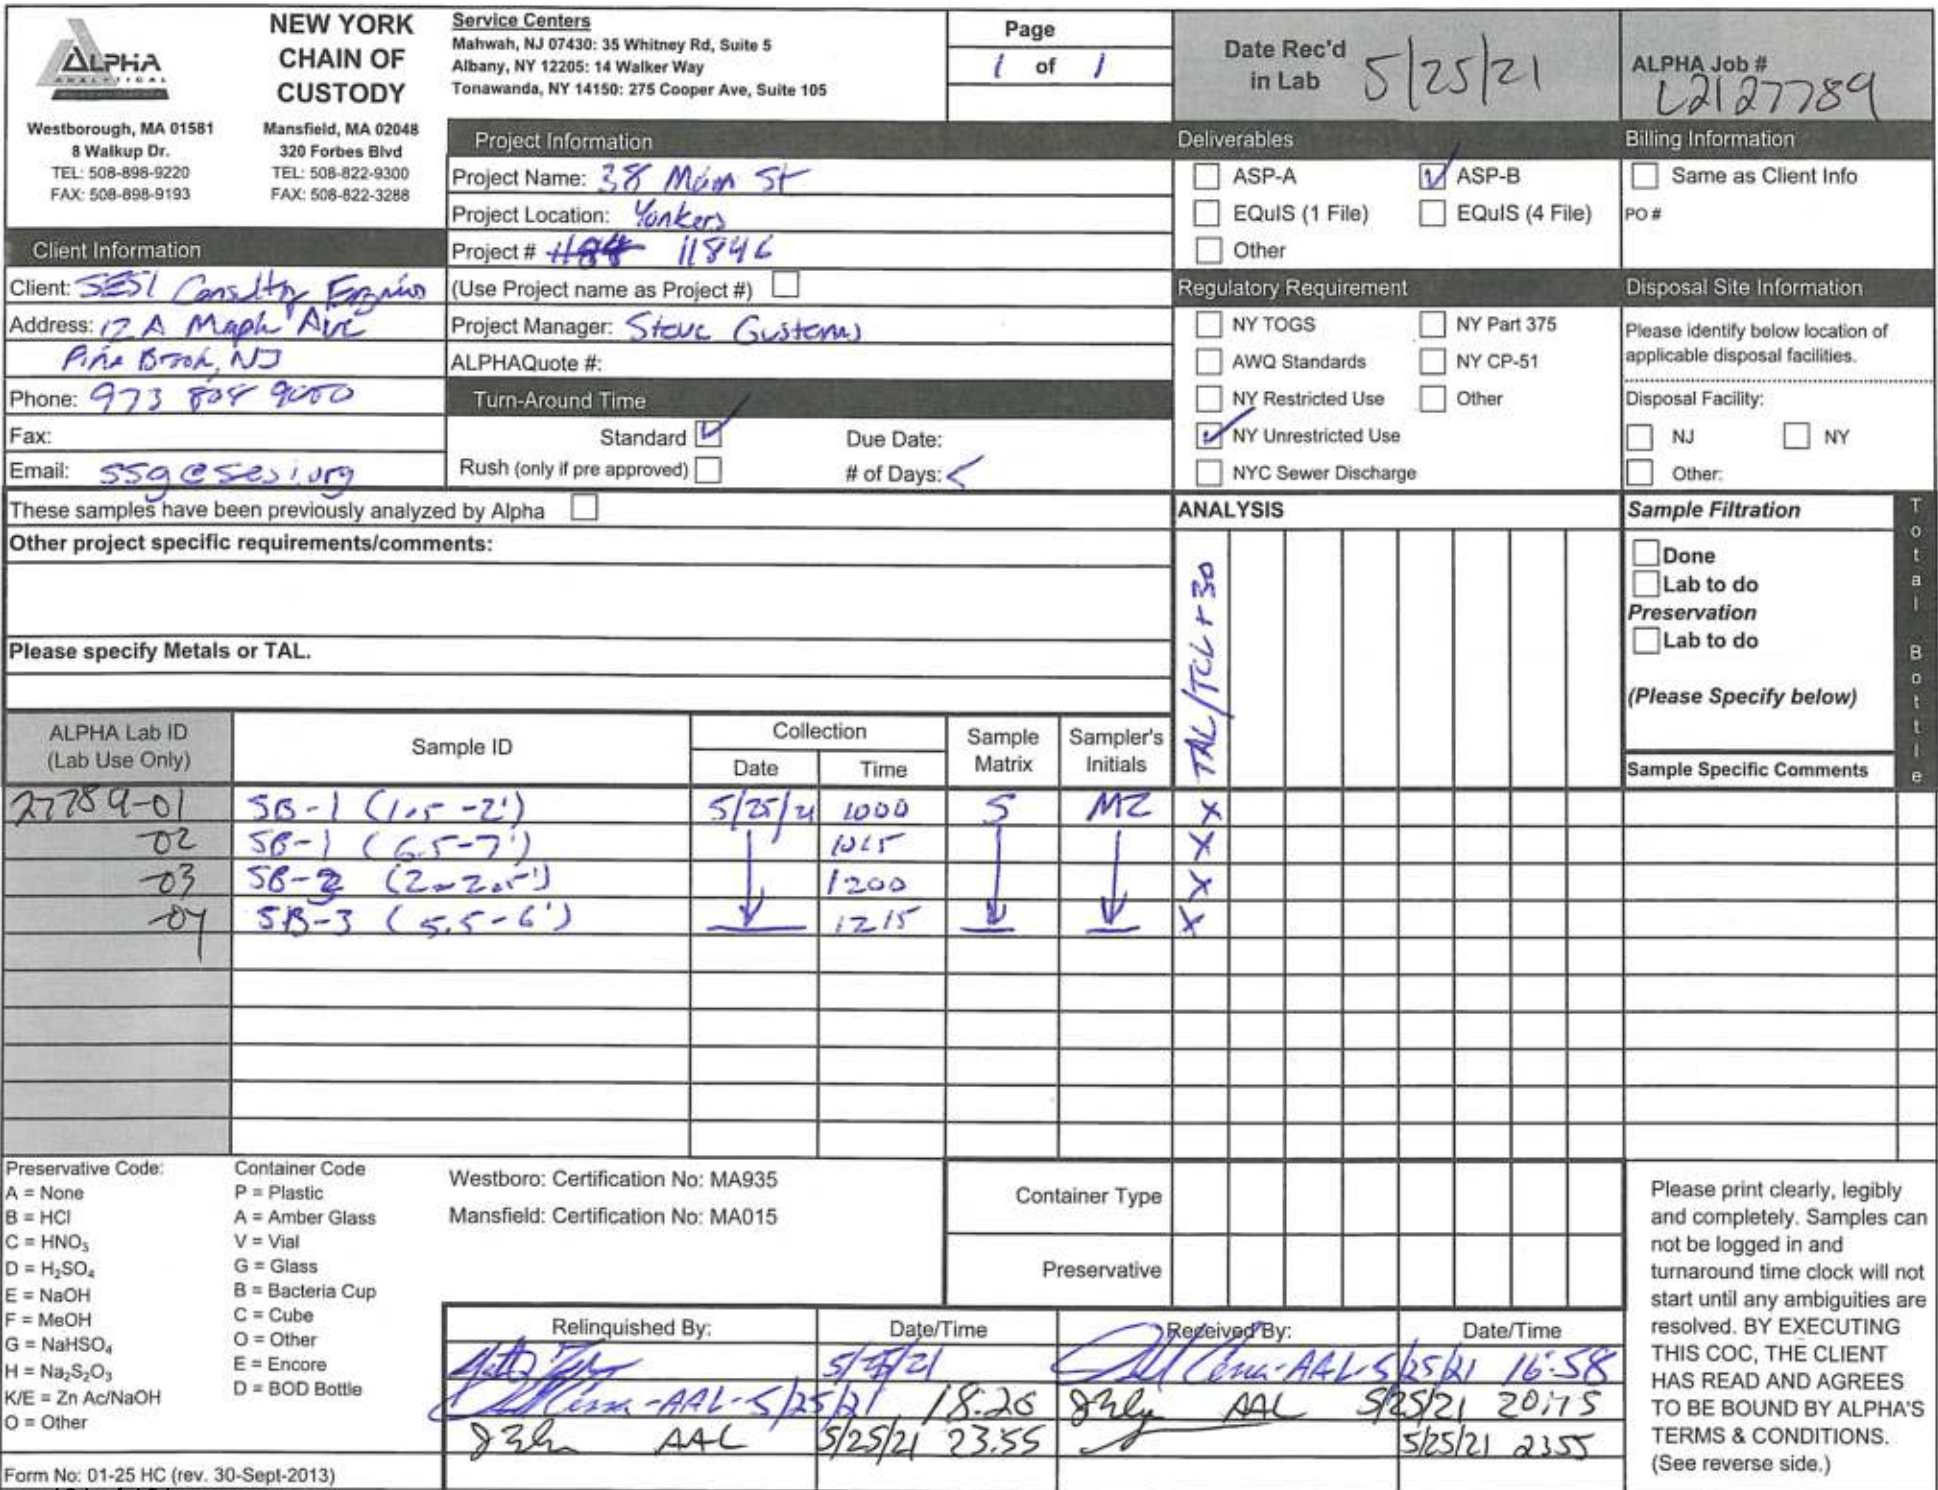 ALPHA
ANALYTICAL
NEW YORK
CHAIN OF
CUSTODY
Westborough, MA 01581
8 Walkup Dr.
TEL: 508-898-9220
FAX: 508-898-9193
Mansfield, MA 02048
320 Forbes Blvd
TEL: 508-822-9300
FAX: 508-822-3288
Service Centers
Mahwah, NJ 07430: 35 Whitney Rd, Suite 5
Albany, NY 12205: 14 Walker Way
Tonawanda, NY 14150: 275 Cooper Ave, Suite 105
Page
1 of 1
Date Rec'd
in Lab 5/25/21
ALPHA Job #
L2127789
Client Information
Client: SESI Consulting
Address: 12 A Maple Ave
Pine Brook, NJ
Phone: 973 808 9050
Fax:
Email: ssg@sesi.org
Project Information
Project Name: 38 Main St
Project Location: Yonkers
Project # 11846
(Use Project name as Project #)
Project Manager: Steve
ALPHAQuote #:
Turn-Around Time
Standard Due Date:
Rush (only if pre approved) # of Days:
Deliverables
ASP-A ASP-B
EQuIS (1 File) EQuIS (4 File)
Other
Regulatory Requirement
NY TOGS NY Part 375
AWQ Standards NY CP-51
NY Restricted Use Other
NY Unrestricted Use
NYC Sewer Discharge
Billing Information
Same as Client Info
PO #
Disposal Site Information
Please identify below location of
applicable disposal facilities.
Disposal Facility:
NJ NY
Other:
These samples have been previously analyzed by Alpha
Other project specific requirements/comments:
Please specify Metals or TAL.
ANALYSIS
TAL/TCL + 30
Sample Filtration
Done
Lab to do
Preservation
Lab to do
(Please Specify below)
Sample Specific Comments
Total Bottle
ALPHA Lab ID
(Lab Use Only)
Sample ID
Collection
Date Time
Sample
Matrix
Sampler's
Initials
27789-01 SB-1 (1.5-2') 5/25/21 1000 S MZ X
-02 SB-1 (6.5-7') 1015 X
-03 SB-2 (2-2.5') 1200 X
-04 SB-3 (5.5-6') 1215 X
Preservative Code:
A = None
B = HCl
C = HNO₃
D = H₂SO₄
E = NaOH
F = MeOH
G = NaHSO₄
H = Na₂S₂O₃
K/E = Zn Ac/NaOH
O = Other
Container Code
P = Plastic
A = Amber Glass
V = Vial
G = Glass
B = Bacteria Cup
C = Cube
O = Other
E = Encore
D = BOD Bottle
Westboro: Certification No: MA935
Mansfield: Certification No: MA015
Container Type
Preservative
Relinquished By: Date/Time Received By: Date/Time
5/25/21 AAL 5/25/21 16:58
AAL-5/25/21 18:26 AAL 5/25/21 20:15
AAL 5/25/21 23:55 5/25/21 2355
Please print clearly, legibly
and completely. Samples can
not be logged in and
turnaround time clock will not
start until any ambiguities are
resolved. BY EXECUTING
THIS COC, THE CLIENT
HAS READ AND AGREES
TO BE BOUND BY ALPHA'S
TERMS & CONDITIONS.
(See reverse side.)
Form No: 01-25 HC (rev. 30-Sept-2013)